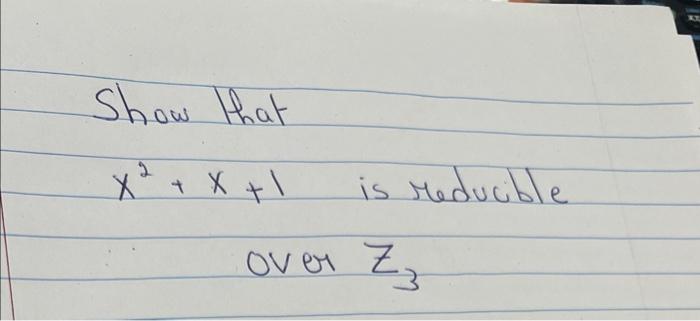 Show that
x² + x + 1 is reducible
over Z₃